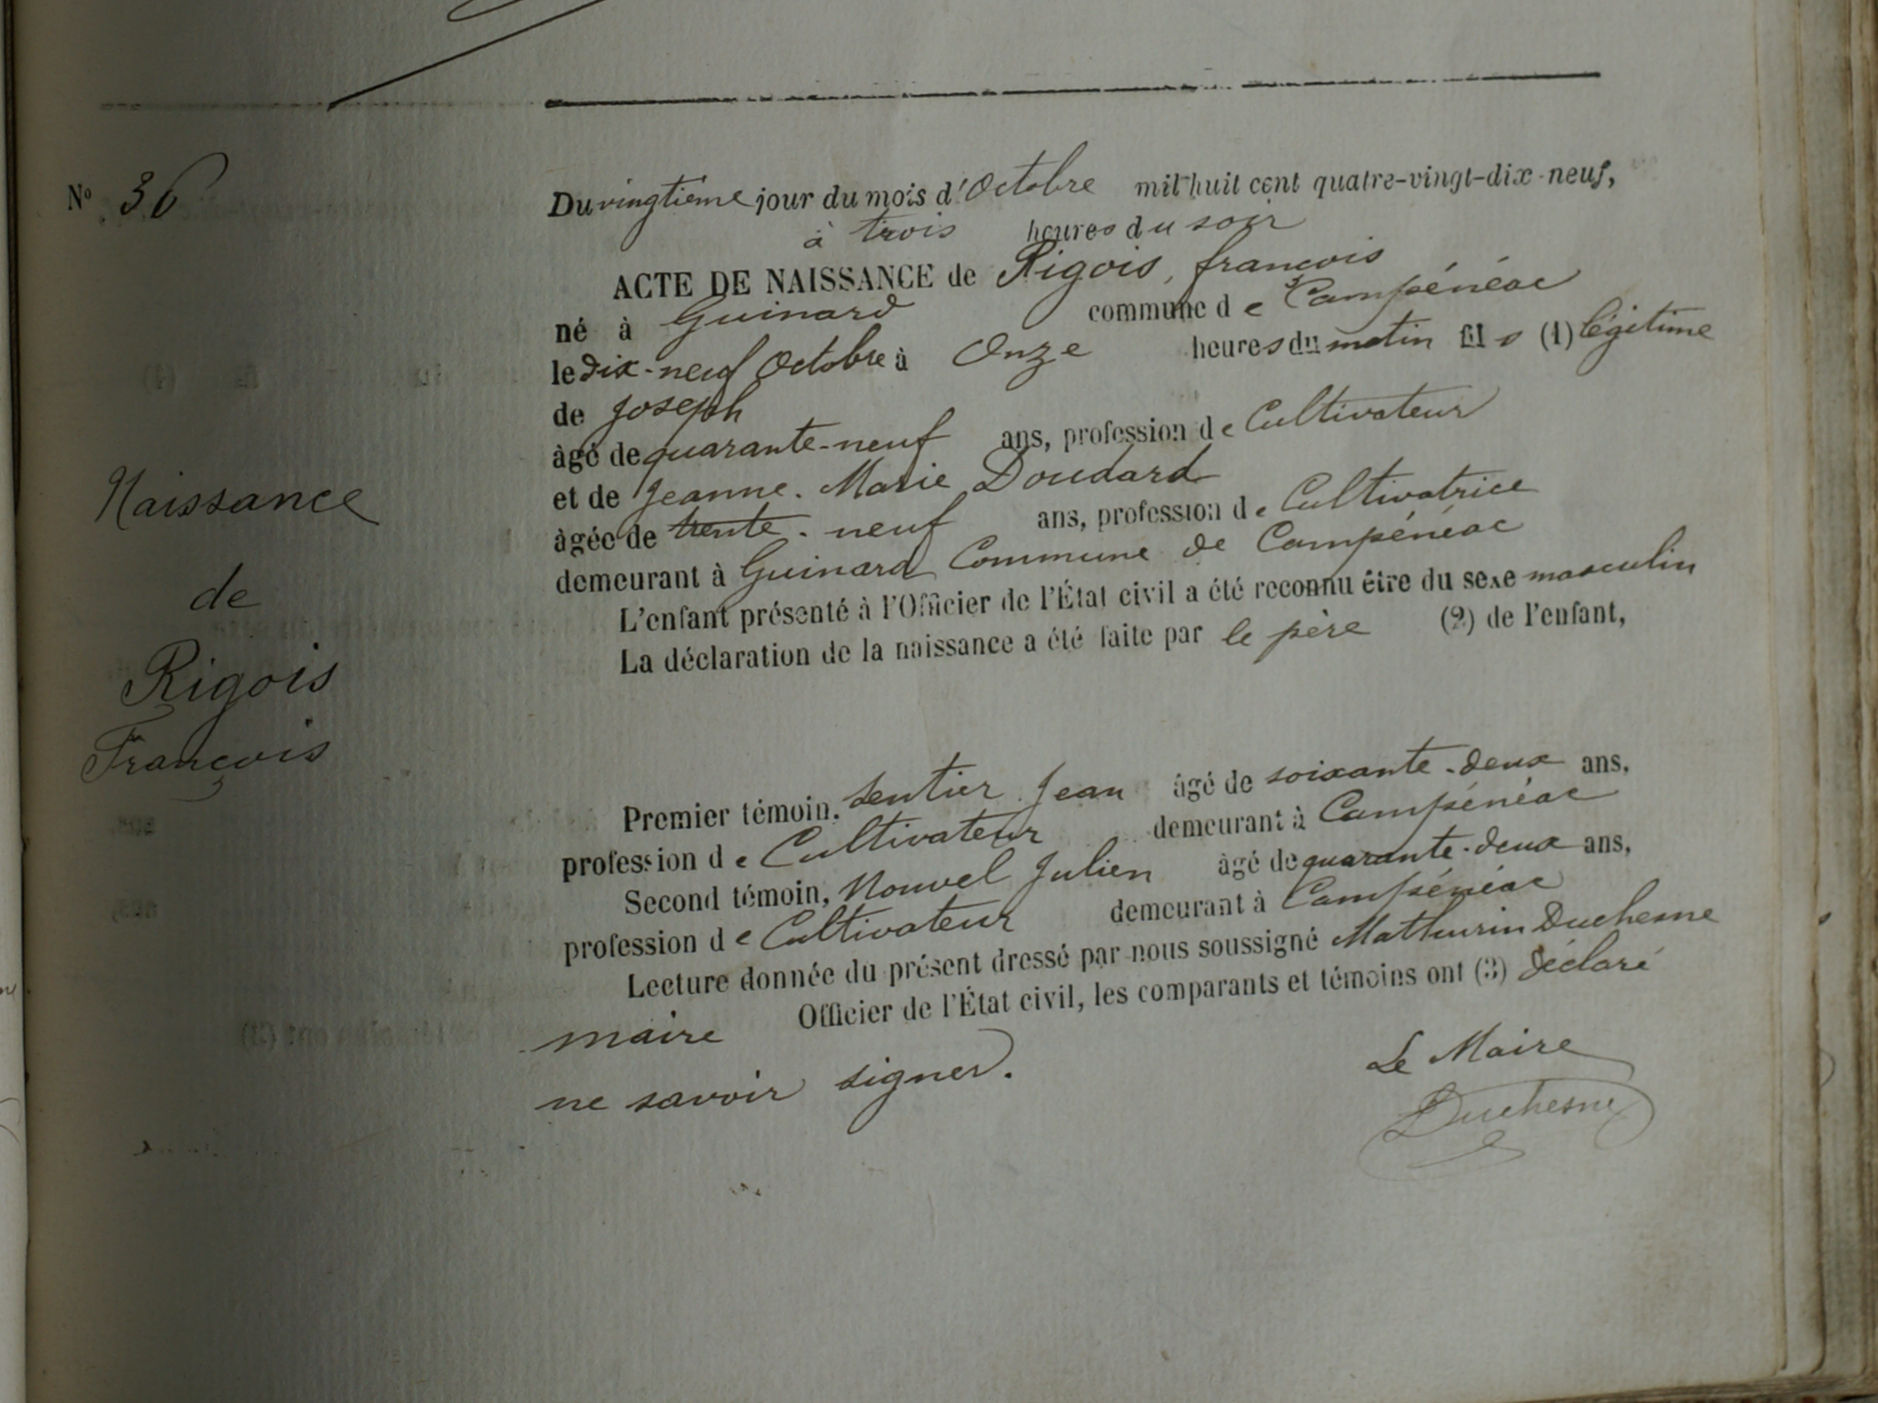 N° 36
Du vingtième jour du mois d'Octobre mil huit cent quatre-vingt-dix-neuf,
à trois heures du soir
ACTE DE NAISSANCE de Rigois, françois
né à Guinard commune de Campénéac
le dix-neuf Octobre à Onze heures du matin fils (1) légitime
de Joseph
âgé de quarante-neuf ans, profession de Cultivateur
et de Jeanne. Marie Doudard
âgée de trente-neuf ans, profession de Cultivatrice
demeurant à Guinard Commune de Campénéac
L'enfant présenté à l'Officier de l'État civil a été reconnu être du sexe masculin
La déclaration de la naissance a été faite par le père (2) de l'enfant,
Naissance
de
Rigois
François
Premier témoin, Sentier Jean âgé de soixante-deux ans,
profession de Cultivateur demeurant à Campénéac
Second témoin, Nouvel Julien âgé de quarante-deux ans,
profession de Cultivateur demeurant à Campénéac
Lecture donnée du présent dressé par nous soussigné Mathurin Duchesne
maire Officier de l'État civil, les comparants et témoins ont (3) déclaré
ne savoir signer.
Le Maire
Duchesne